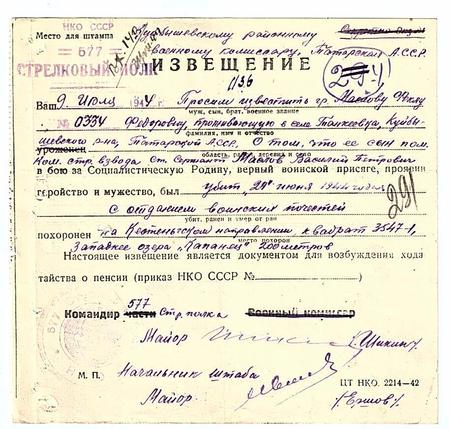 НКО СССР
Куйбышевскому районному
Место для штампа
577
военному комиссару, Татарской АССР.
СТРЕЛКОВЫЙ ПОЛК
ИЗВЕЩЕНИЕ
1136
"9" Июля 1944 г. Просим известить гр. Маслову
муж, сын, брат, военное звание
№ 0334 Федоровну, проживающую в селе Танкеевка, Куйбы-
фамилия, имя и отчество
шевского р-на, Татарской АССР. О том, что ее сын пом.
уроженец
область, район, деревня и село
Ком. стр. взвода Ст. Сержант Маслов Василий Петрович
в бою за Социалистическую Родину, верный воинской присяге, проявив
геройство и мужество, был убит, 29 июня 1944 года
291
с отданием воинских почестей
убит, ранен и умер от ран
похоронен на Кестеньгском направлении, квадрат 3547-1,
Западнее озера "Капанец" 200 метров
место похорон
Настоящее извещение является документом для возбуждения хода-
тайства о пенсии (приказ НКО СССР №
577
Командир части Стр. полка
Военный комиссар
Майор
(Шикин)
М. П. Начальник штаба
ЦТ НКО. 2214—42
Майор
(Ершов)